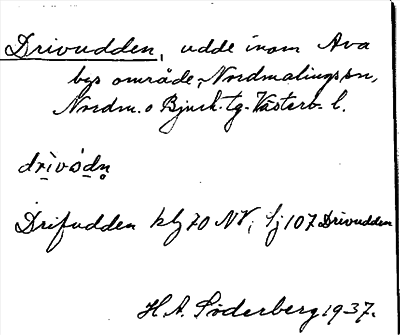 Drivudden, udde inom Ava
bys område, Nordmalings sn,
Nordm. o Bjurh. tg. Västerb. l.
drìvòdn̥
Drifudden klj 70 NV; Sj 107 Drivudden
H. A. Söderberg 1937.